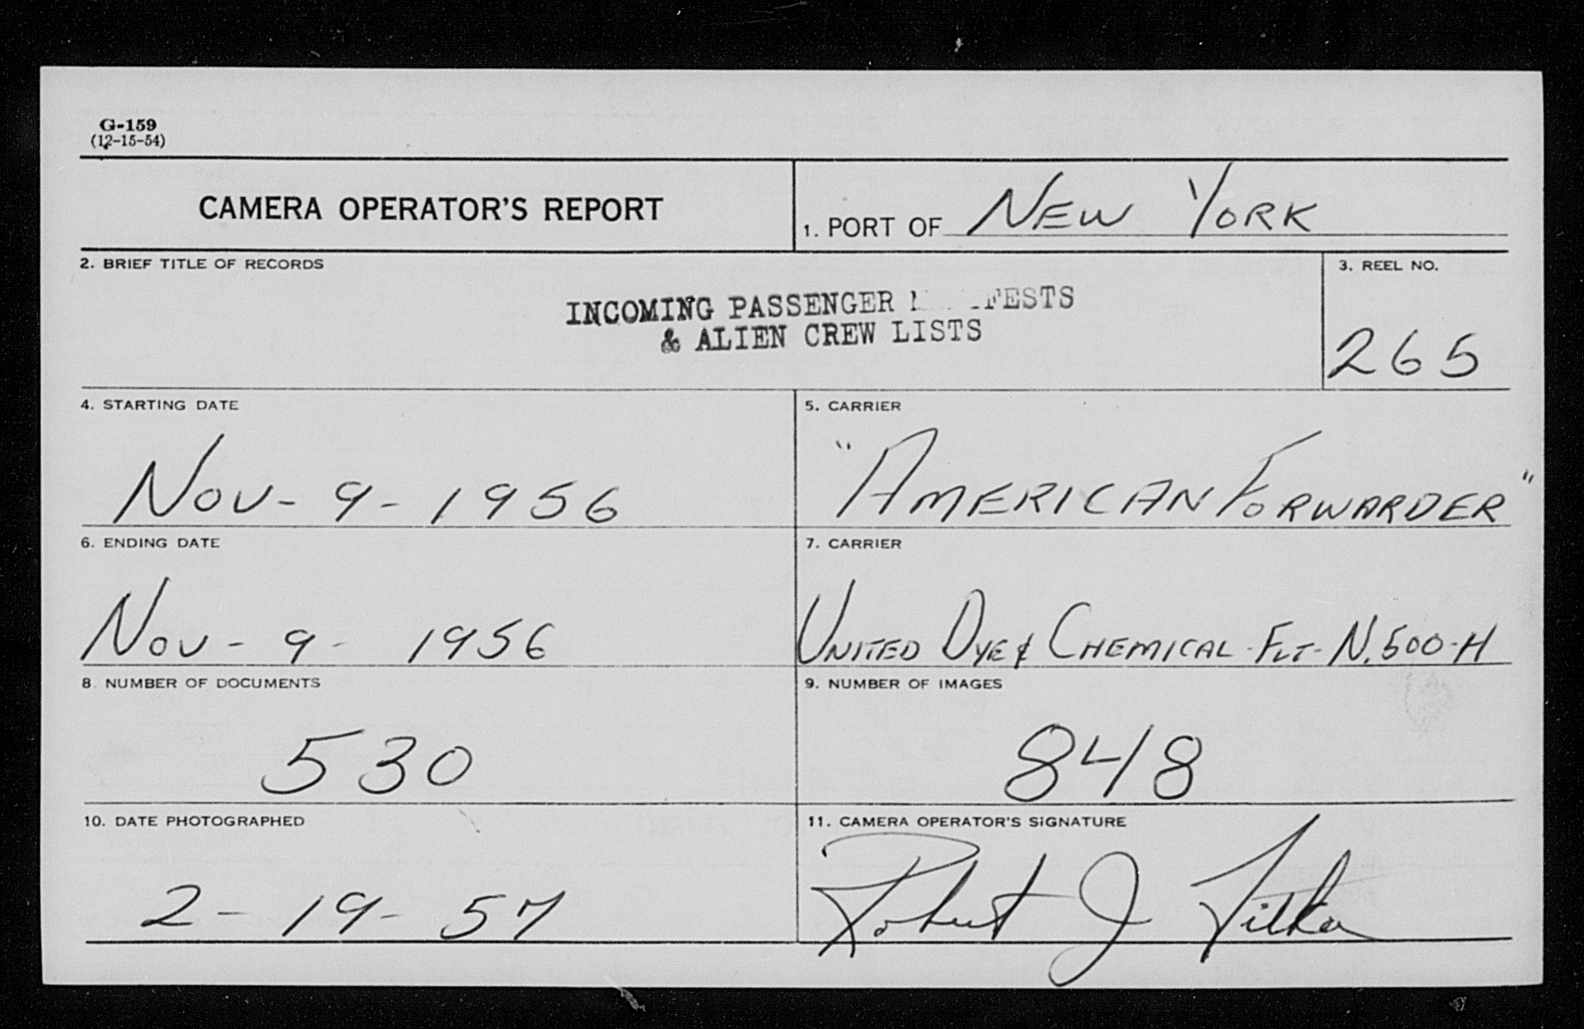 G-159
(12-15-54)
CAMERA OPERATOR'S REPORT
1. PORT OF NEW YORK
2. BRIEF TITLE OF RECORDS
INCOMING PASSENGER
& ALIEN CREW LISTS
3. REEL NO.
265
4. STARTING DATE
NOV - 9 - 1956
5. CARRIER
"AMERICAN FORWARDER"
6. ENDING DATE
NOV - 9 - 1956
7. CARRIER
UNITED DYE & CHEMICAL - FLT - N.500-H
8. NUMBER OF DOCUMENTS
530
9. NUMBER OF IMAGES
848
10. DATE PHOTOGRAPHED
2 - 19 - 57
11. CAMERA OPERATOR'S SIGNATURE
Robert J